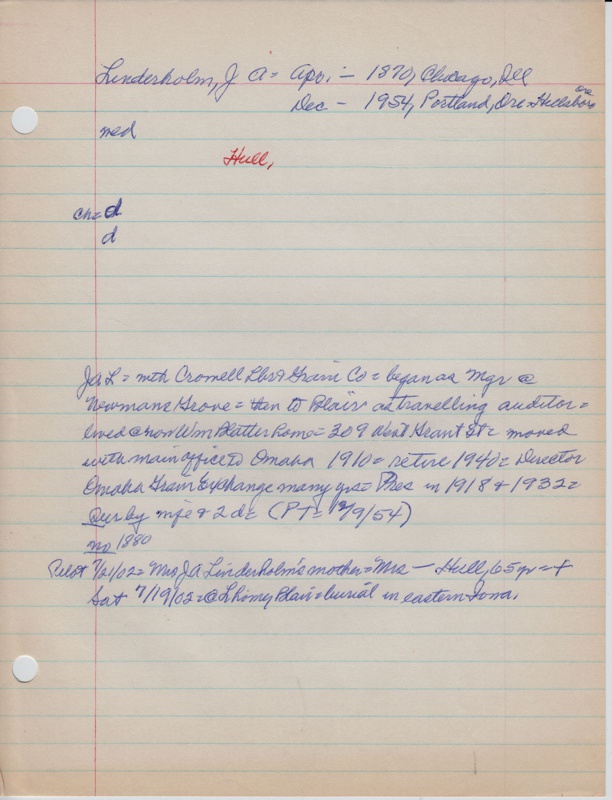 Linderholm, J A = Apr. - 1870, Chicago, Ill
Dec - 1954, Portland, Ore = Hillsboro Ore
med
Hull,
ch = d
d
JaL = with Crowell Lbr & Grain Co = began as Mgr @
Newmans Grove = then to Blair as travelling auditor =
lived @ now Wm Blatter home = 309 West Grant St = moved
with main office to Omaha 1910 = retire 1940 = Director
Omaha Grain Exchange many yrs = Pres in 1918 & 1932 =
Sur by wife & 2 d = (PT = 12/9/54)
no 1880
Pilot 7/21/02 = Mrs JA Linderholm's mother = Mrs - Hull, 65 yr = +
Sat 7/19/02 = @ L home, Blair = burial in eastern Iowa.